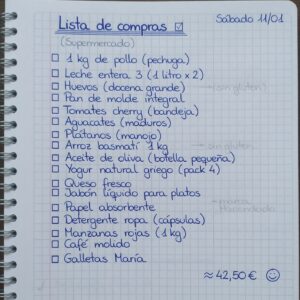 Lista de compras ☑
Sábado 11/01
(Supermercado)
☐ 1 kg de pollo (pechuga)
☐ Leche entera 3 (1 litro x 2)
☐ Huevos (docena grande)
☐ Pan de molde integral
(sin gluten)
☐ Tomates cherry (bandeja)
☐ Aguacates (maduros)
☐ Plátanos (manojo)
☐ Arroz basmati 1 kg
sin gluten
☐ Aceite de oliva (botella pequeña)
☐ Yogur natural griego (pack 4)
☐ Queso fresco
☐ Jabón líquido para platos
☐ Papel absorbente
marca
☐ Detergente ropa (cápsulas)
☐ Manzanas rojas (1 kg)
☐ Café molido
☐ Galletas María
≈ 42,50 € ☺